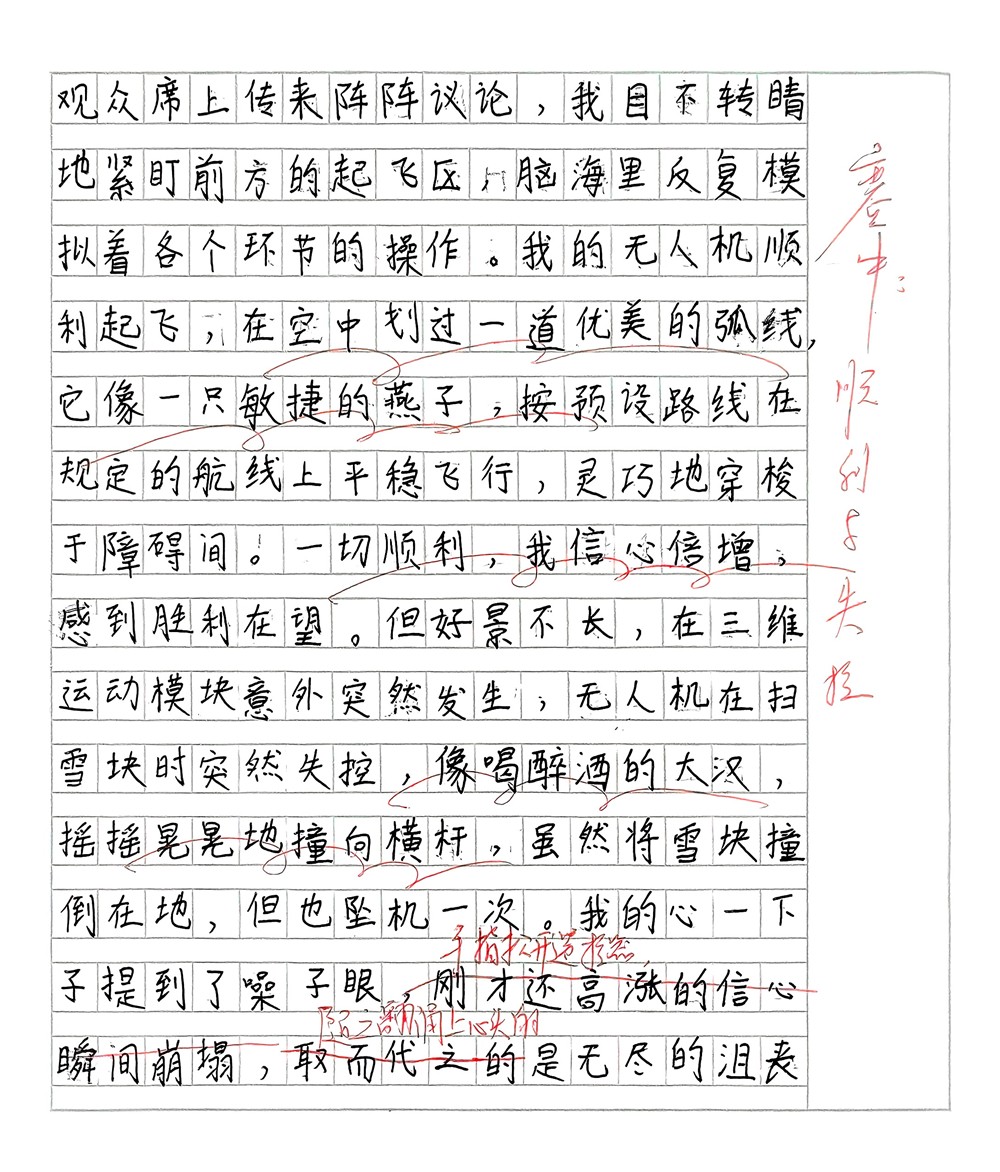 观众席上传来阵阵议论，我目不转睛
地紧盯前方的起飞区，脑海里反复模
拟着各个环节的操作。我的无人机顺
利起飞，在空中划过一道优美的弧线，
它像一只敏捷的燕子，按预设路线在
规定的航线上平稳飞行，灵巧地穿梭
于障碍间。一切顺利，我信心倍增，
感到胜利在望。但好景不长，在三维
运动模块意外突然发生，无人机在扫
雪块时突然失控，像喝醉酒的大汉，
摇摇晃晃地撞向横杆，虽然将雪块撞
倒在地，但也坠机一次。我的心一下
子提到了嗓子眼，刚才还高涨的信心
瞬间崩塌，取而代之的是无尽的沮丧
赛中：顺利与失控
手指打开遥控器，
随之翻涌上心头的